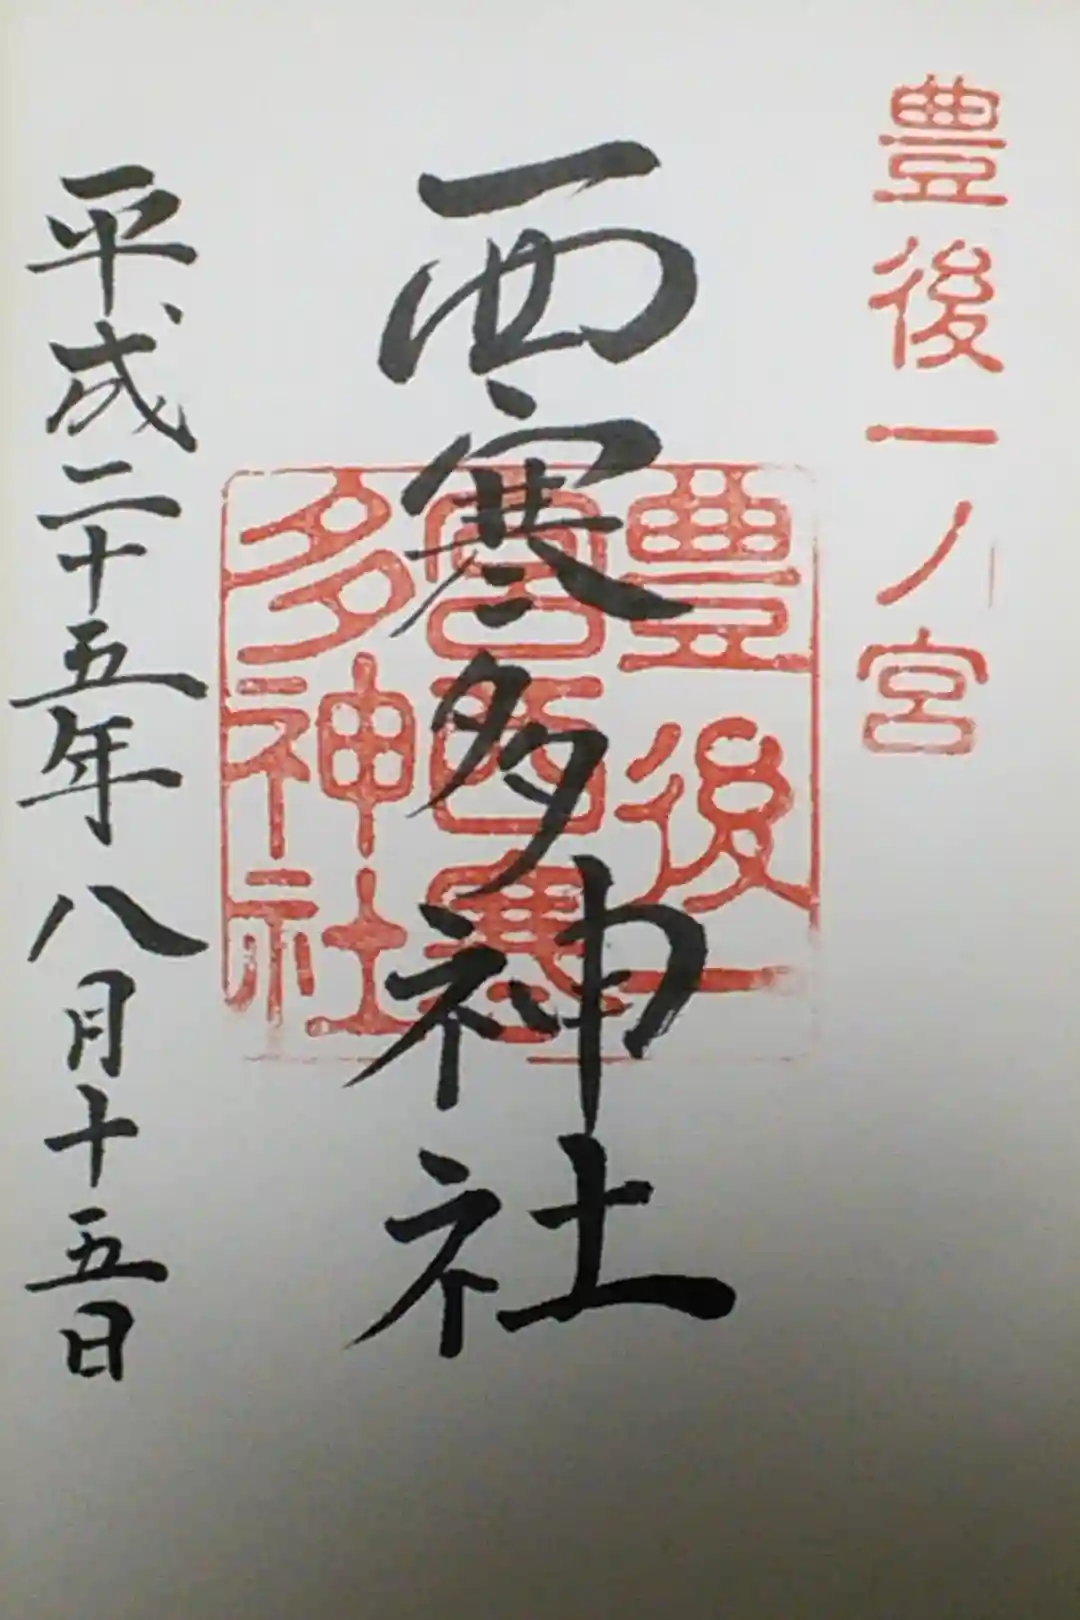 豊後一ノ宮
西寒多神社
豊後一
宮西寒
多神社
平成二十五年八月十五日